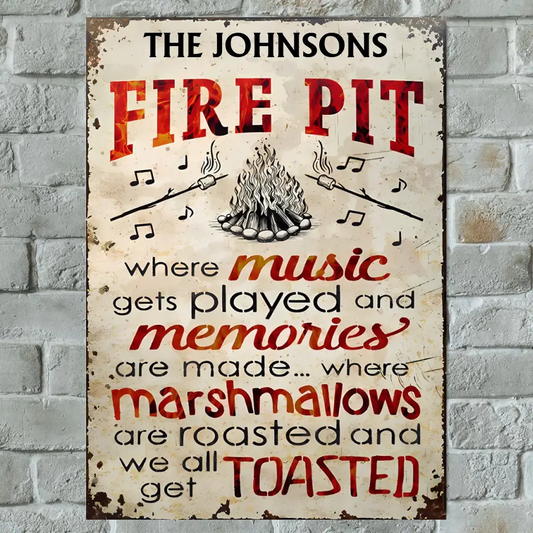 THE JOHNSONS
FIRE PIT
where music
gets played and
memories
are made... where
marshmallows
are roasted and
we all
get TOASTED